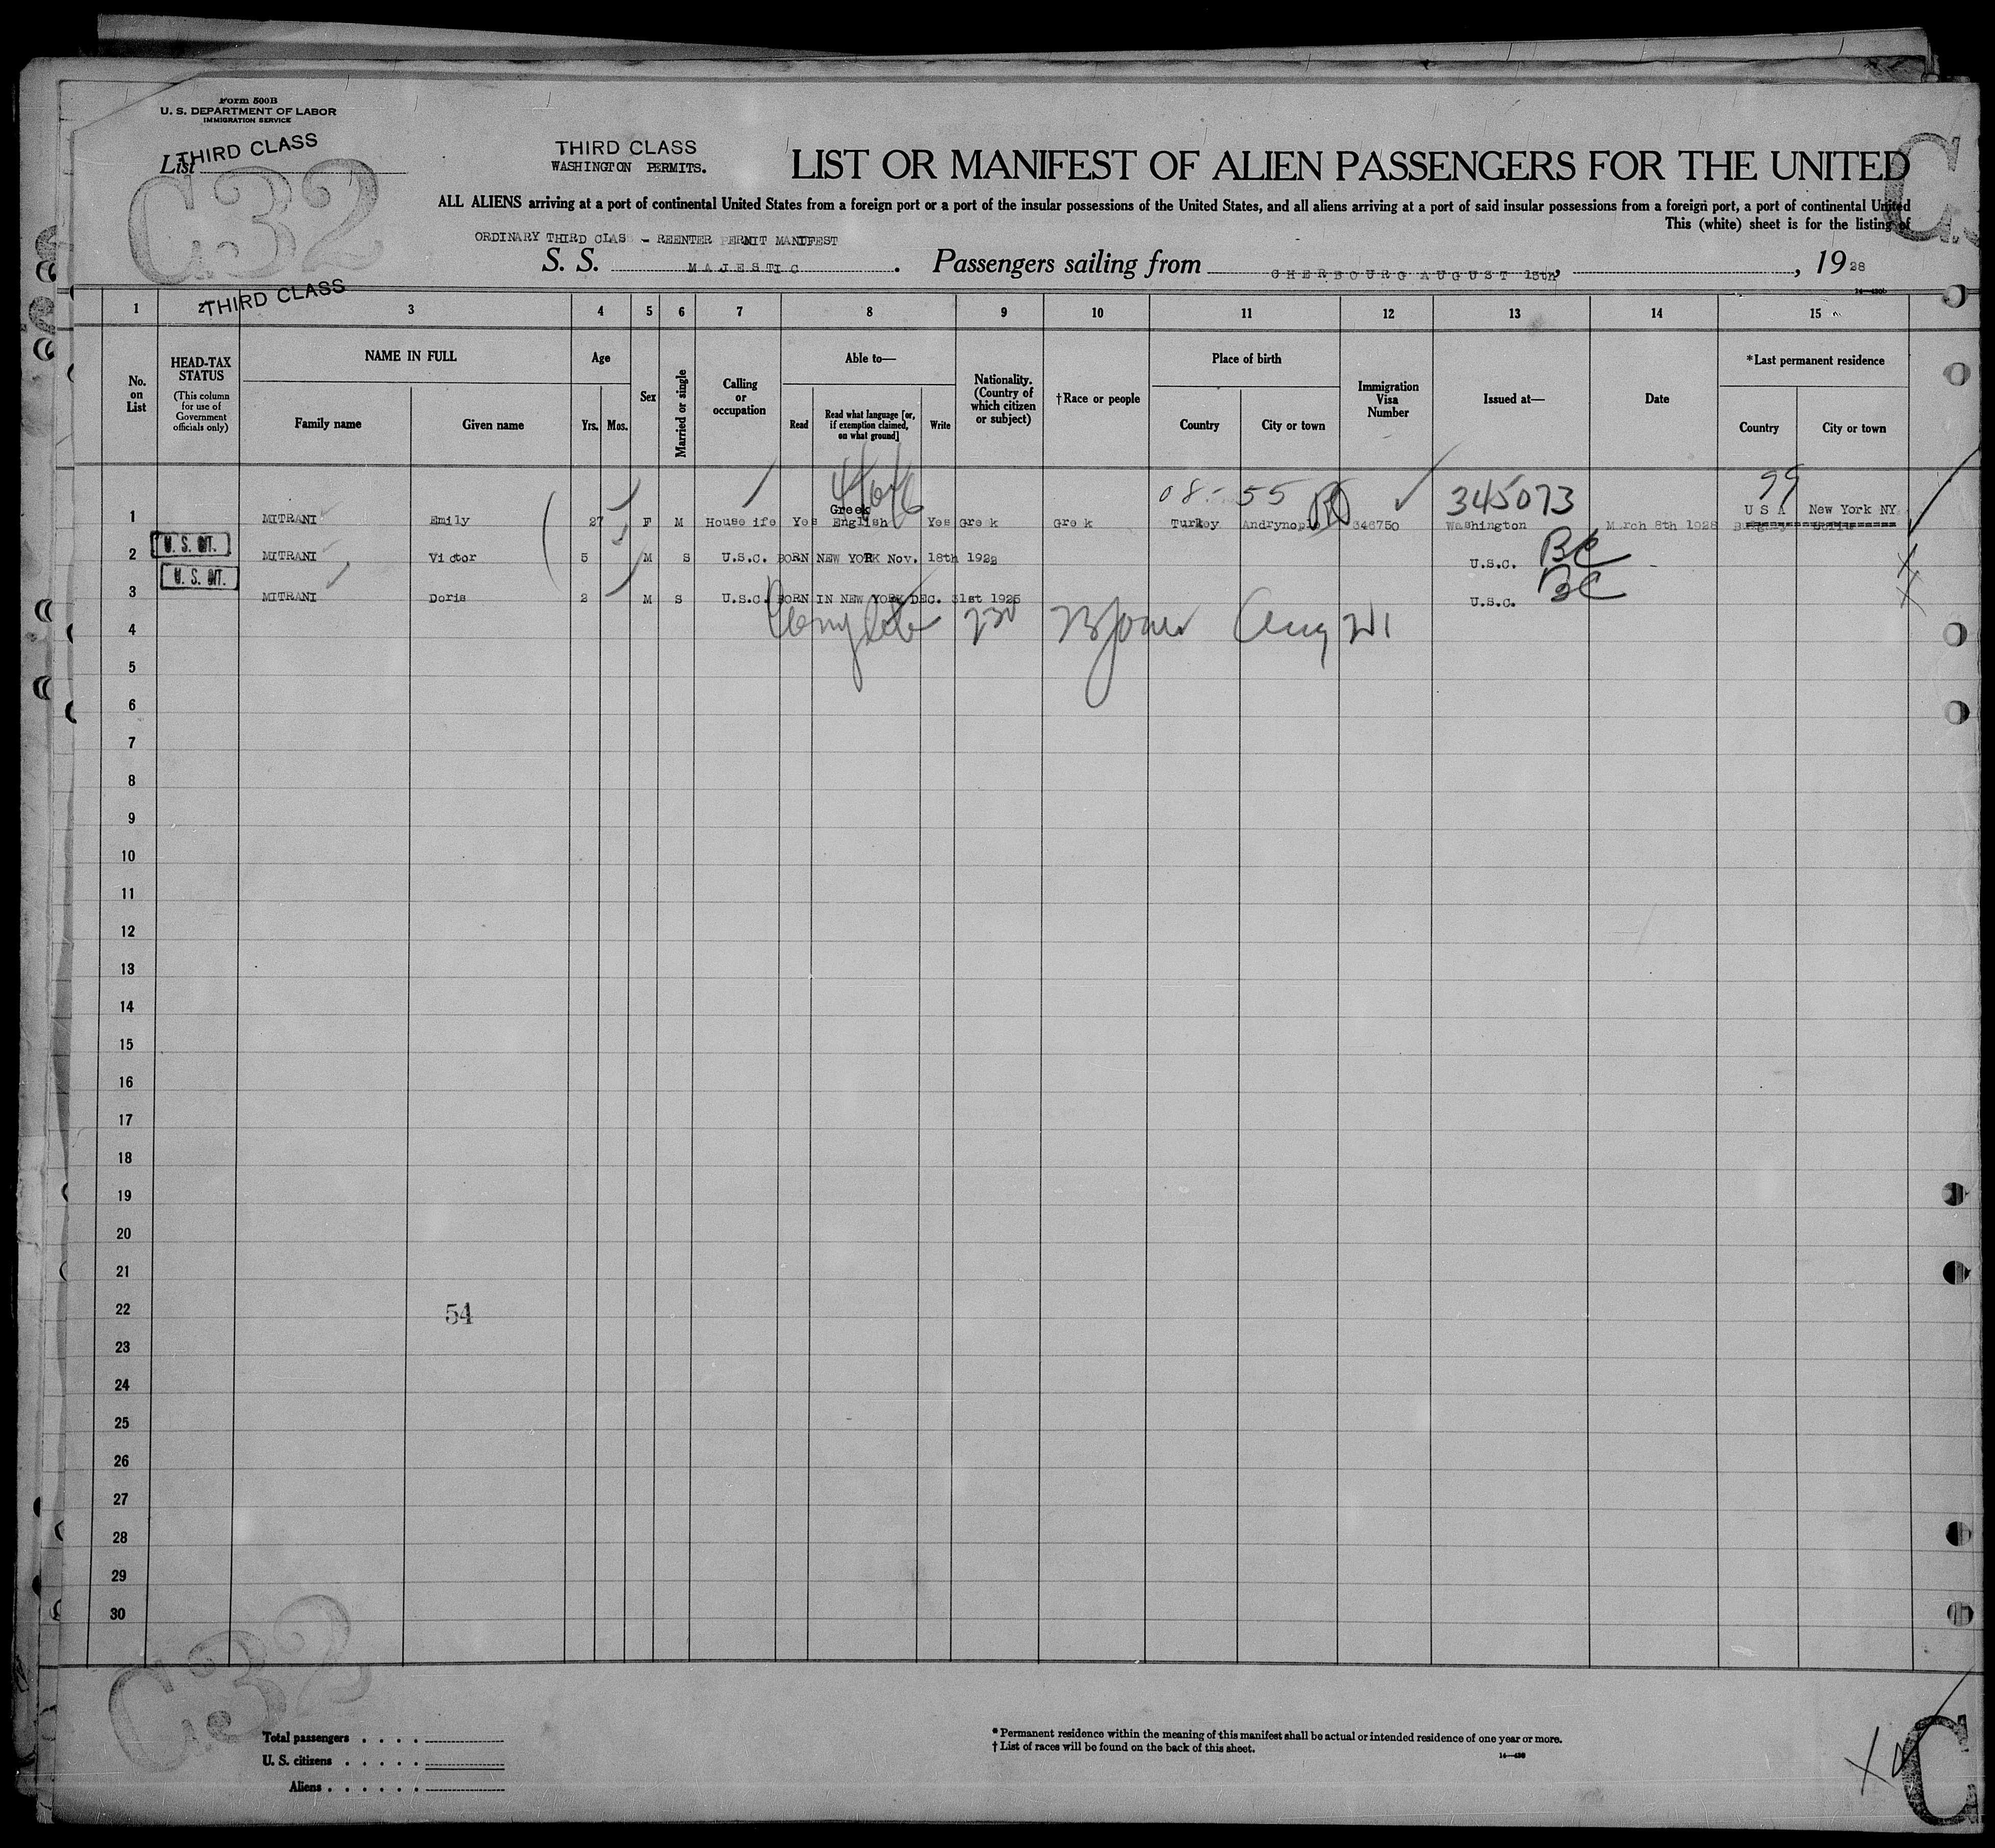 Form 500B
U. S. DEPARTMENT OF LABOR
IMMIGRATION SERVICE
THIRD CLASS
List
C32
THIRD CLASS
WASHINGTON PERMITS.
LIST OR MANIFEST OF ALIEN PASSENGERS FOR THE UNITED
ALL ALIENS arriving at a port of continental United States from a foreign port or a port of the insular possessions of the United States, and all aliens arriving at a port of said insular possessions from a foreign port, a port of continental United
This (white) sheet is for the listing of
ORDINARY THIRD CLAS - REENTER PERMIT MANIFEST
S. S. MAJESTIC. Passengers sailing from CHERBOURG AUGUST 15th, , 19 28
THIRD CLASS
1 2 3 4 5 6 7 8 9 10 11 12 13 14 15
No. on List
HEAD-TAX STATUS
(This column for use of Government officials only)
NAME IN FULL
Family name Given name
Age
Yrs. Mos.
Sex
Married or single
Calling or occupation
Able to—
Read
Read what language [or, if exemption claimed, on what ground]
Write
Nationality. (Country of which citizen or subject)
†Race or people
Place of birth
Country City or town
Immigration Visa Number
Issued at—
Date
*Last permanent residence
Country City or town
08-55 345073 99
1 MITRANI Emily 27 F M House ife Yes Greek English Yes Gre k Gre k Turkey Andrynople 346750 Washington March 8th 1928 U S A New York NY
U. S. CIT.
2 MITRANI Victor 5 M S U.S.C. BORN NEW YORK Nov. 18th 1922 U.S.C. BC
U. S. CIT.
3 MITRANI Doris 2 M S U.S.C. BORN IN NEW YORK DEC. 31st 1925 U.S.C. BC
4 230 Aug 21
5
6
7
8
9
10
11
12
13
14
15
16
17
18
19
20
21
22 54
23
24
25
26
27
28
29
30
C32
Total passengers
U. S. citizens
Aliens
* Permanent residence within the meaning of this manifest shall be actual or intended residence of one year or more.
† List of races will be found on the back of this sheet.
14—430
C